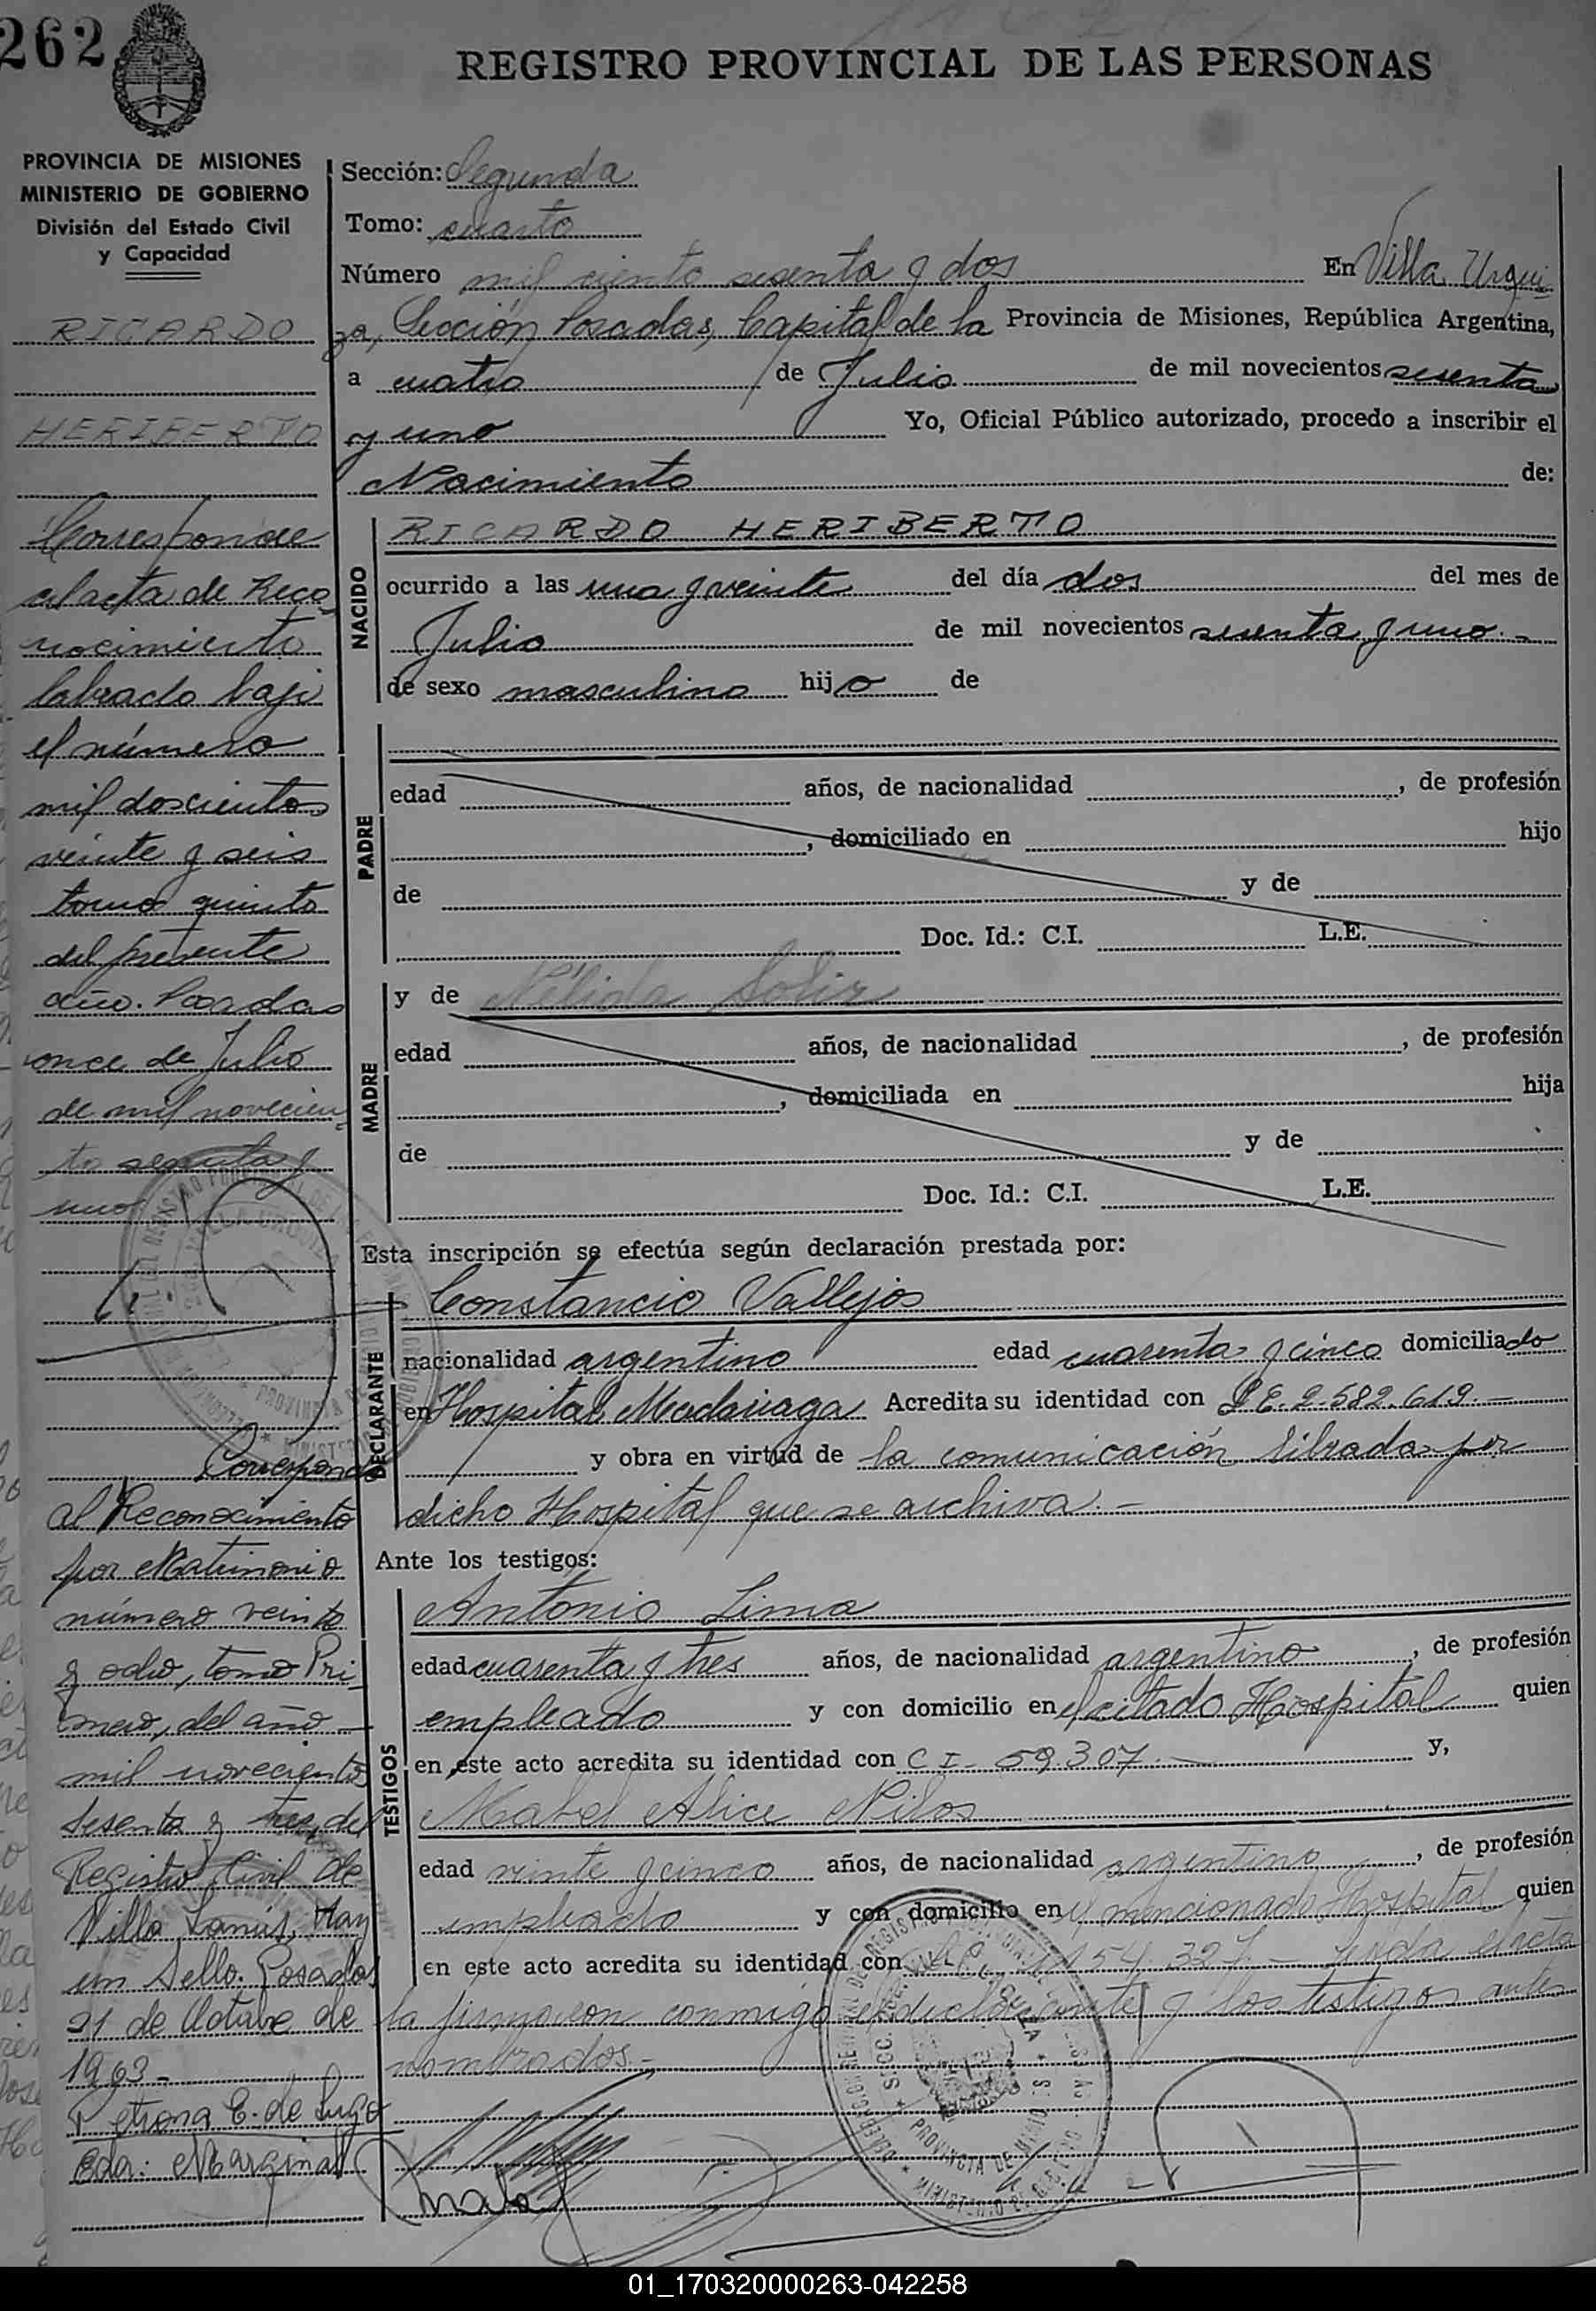 262
REGISTRO PROVINCIAL DE LAS PERSONAS
PROVINCIA DE MISIONES
MINISTERIO DE GOBIERNO
División del Estado Civil
y Capacidad
RICARDO
HERIBERTO
Corresponde
al acta de Reco
nocimiento
labrado bajo
el número
mil doscientos
veinte y seis
tomo quinto
del presente
año. Posadas
once de Julio
de mil novecien
to sesenta y
uno
Corresponde
al Reconocimiento
por Matrimonio
número veinte
y ocho, tomo Pri
mero, del año
mil novecientos
sesenta y tres, del
Registro Civil de
Villa Lanús, Hay
un Sello. Posadas
21 de Octubre de
1963-
Petrona E. de Lugo
Eda: Marginal
Sección: Segunda
Tomo: cuarto
Número mil ciento sesenta y dos En Villa Urqui
za, Sección Posadas, Capital de la Provincia de Misiones, República Argentina,
a cuatro de Julio de mil novecientos sesenta
y uno Yo, Oficial Público autorizado, procedo a inscribir el
Nacimiento de:
NACIDO
RICARDO HERIBERTO
ocurrido a las una y veinte del día dos del mes de
Julio de mil novecientos sesenta y uno.-
de sexo masculino hijo de
PADRE
edad años, de nacionalidad , de profesión
, domiciliado en hijo
de y de
Doc. Id.: C.I. L.E.
MADRE
y de Nélida Solis
edad años, de nacionalidad , de profesión
, domiciliada en hija
de y de
Doc. Id.: C.I. L.E.
Esta inscripción se efectúa según declaración prestada por:
DECLARANTE
Constancio Vallejos
nacionalidad argentino edad cuarenta y cinco domiciliado
en Hospital Madariaga Acredita su identidad con L.E. 2.582.619.-
y obra en virtud de la comunicación librada por
dicho Hospital que se archiva.-
Ante los testigos:
TESTIGOS
Antonio Lima
edad cuarenta y tres años, de nacionalidad argentino , de profesión
empleado y con domicilio en el citado Hospital quien
en este acto acredita su identidad con C I- 59.307.- y,
Mabel Alice
edad veinte y cinco años, de nacionalidad argentino , de profesión
empleado y con domicilio en el mencionado Hospital quien
en este acto acredita su identidad con 154.327- leída el acta
la firmaron conmigo el declarante y los testigos antes
nombrados.-
01_170320000263-042258